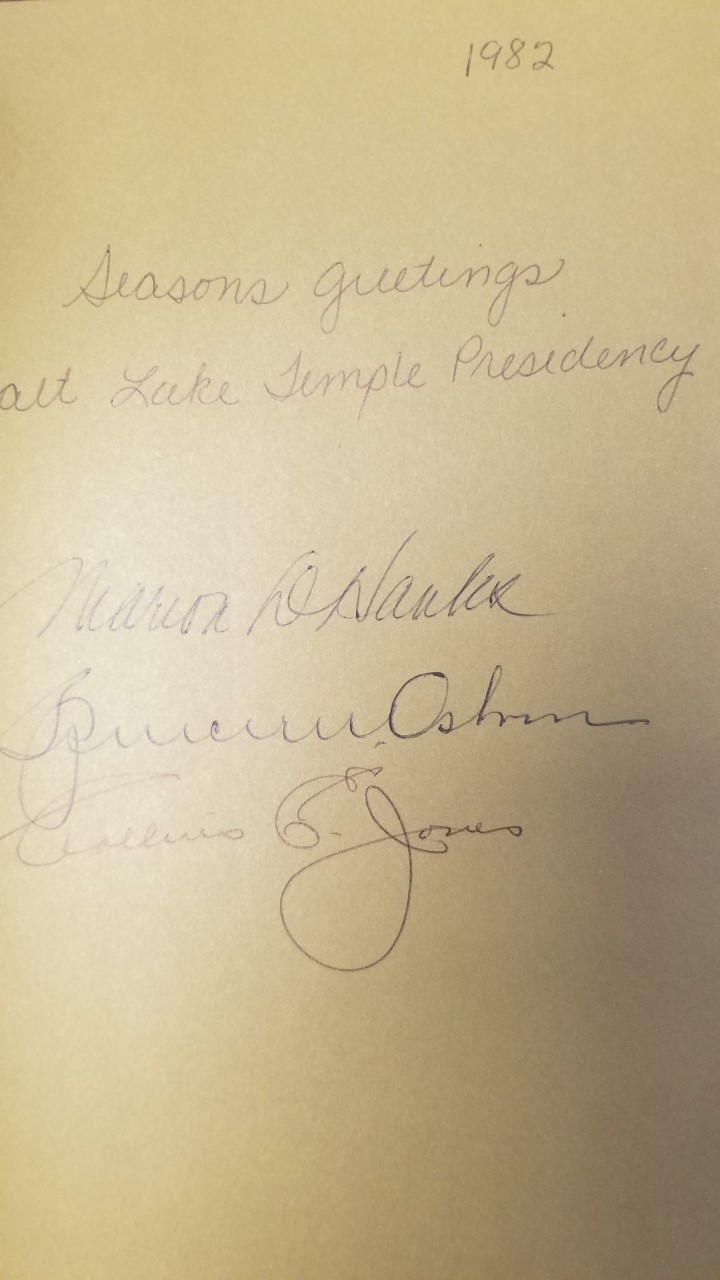 1982
Seasons Greetings
alt Lake Temple Presidency
Marion D Hanks
Spencer H. Osborn
E. Jones